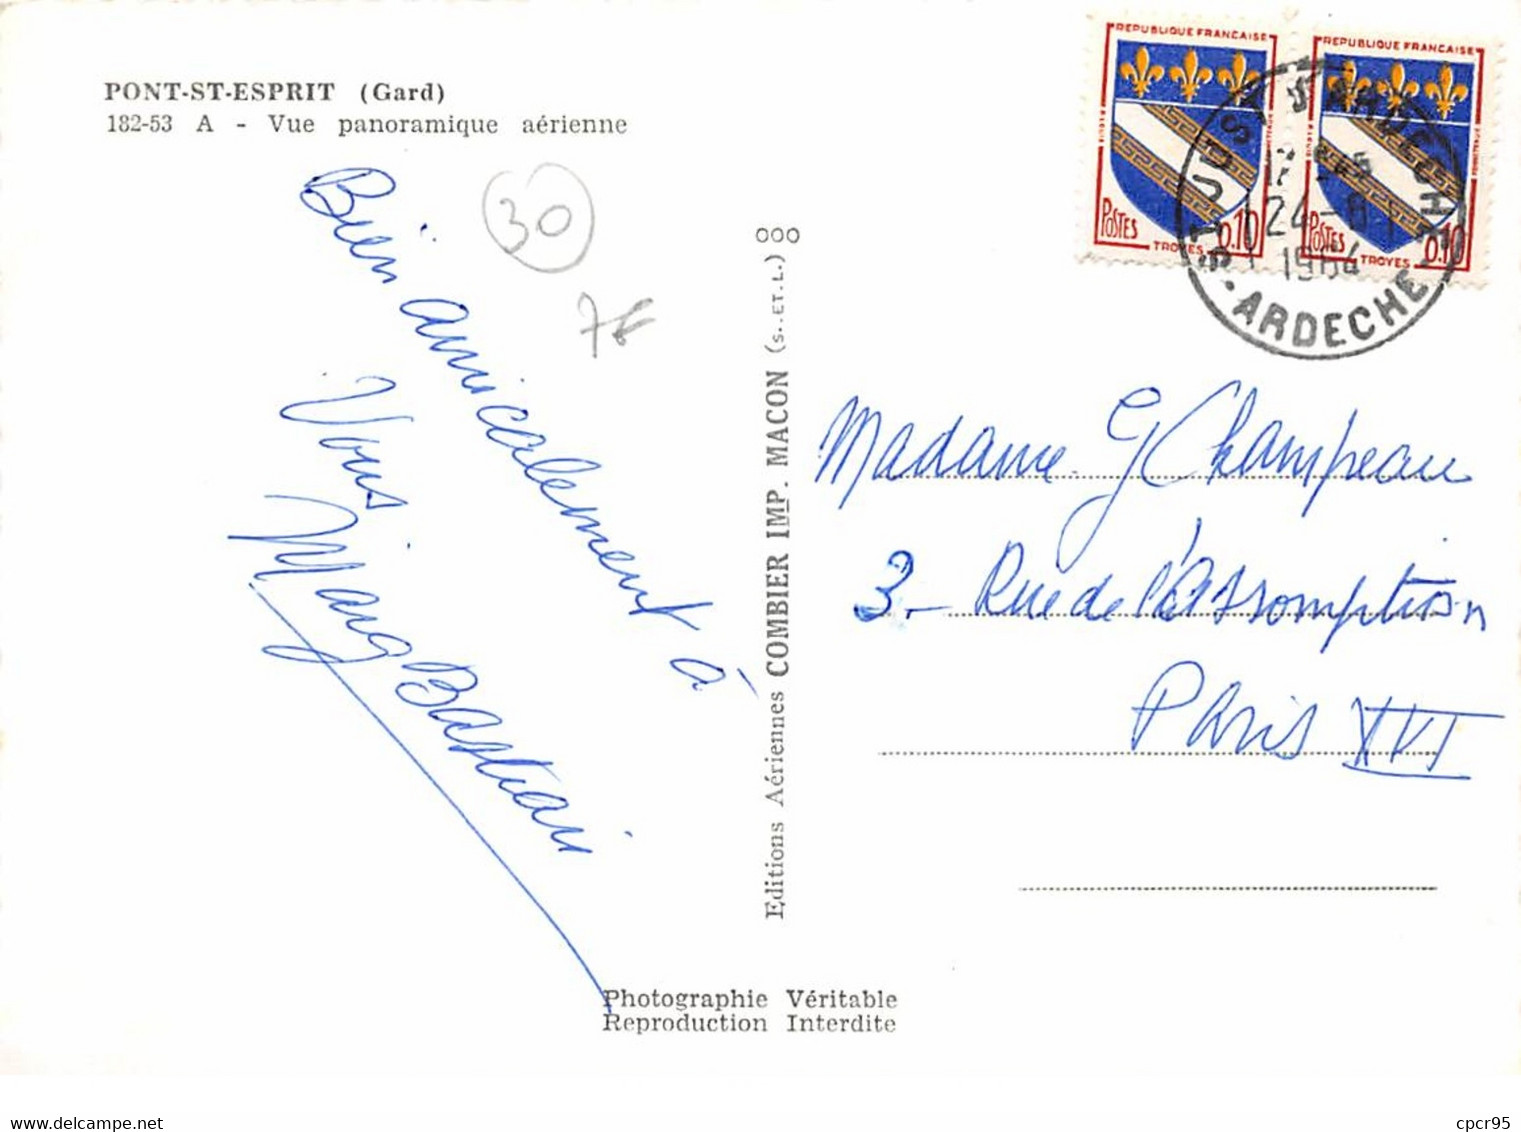 PONT-ST-ESPRIT (Gard)
182-53 A - Vue panoramique aérienne
30
7F
Bien amicalement à
Vous
Marg Bastian
000
Editions Aériennes COMBIER IMP. MACON (S.. ET. L.)
REPUBLIQUE FRANCAISE
POSTES
0.10
TROYES
REPUBLIQUE FRANCAISE
POSTES
0.10
TROYES
ST JUST D'ARDECHE
24-8
1964
ARDECHE
Madame G Champeau
3- Rue de l'Assomption
Paris XVI
Photographie Véritable
Reproduction Interdite
cpcr95